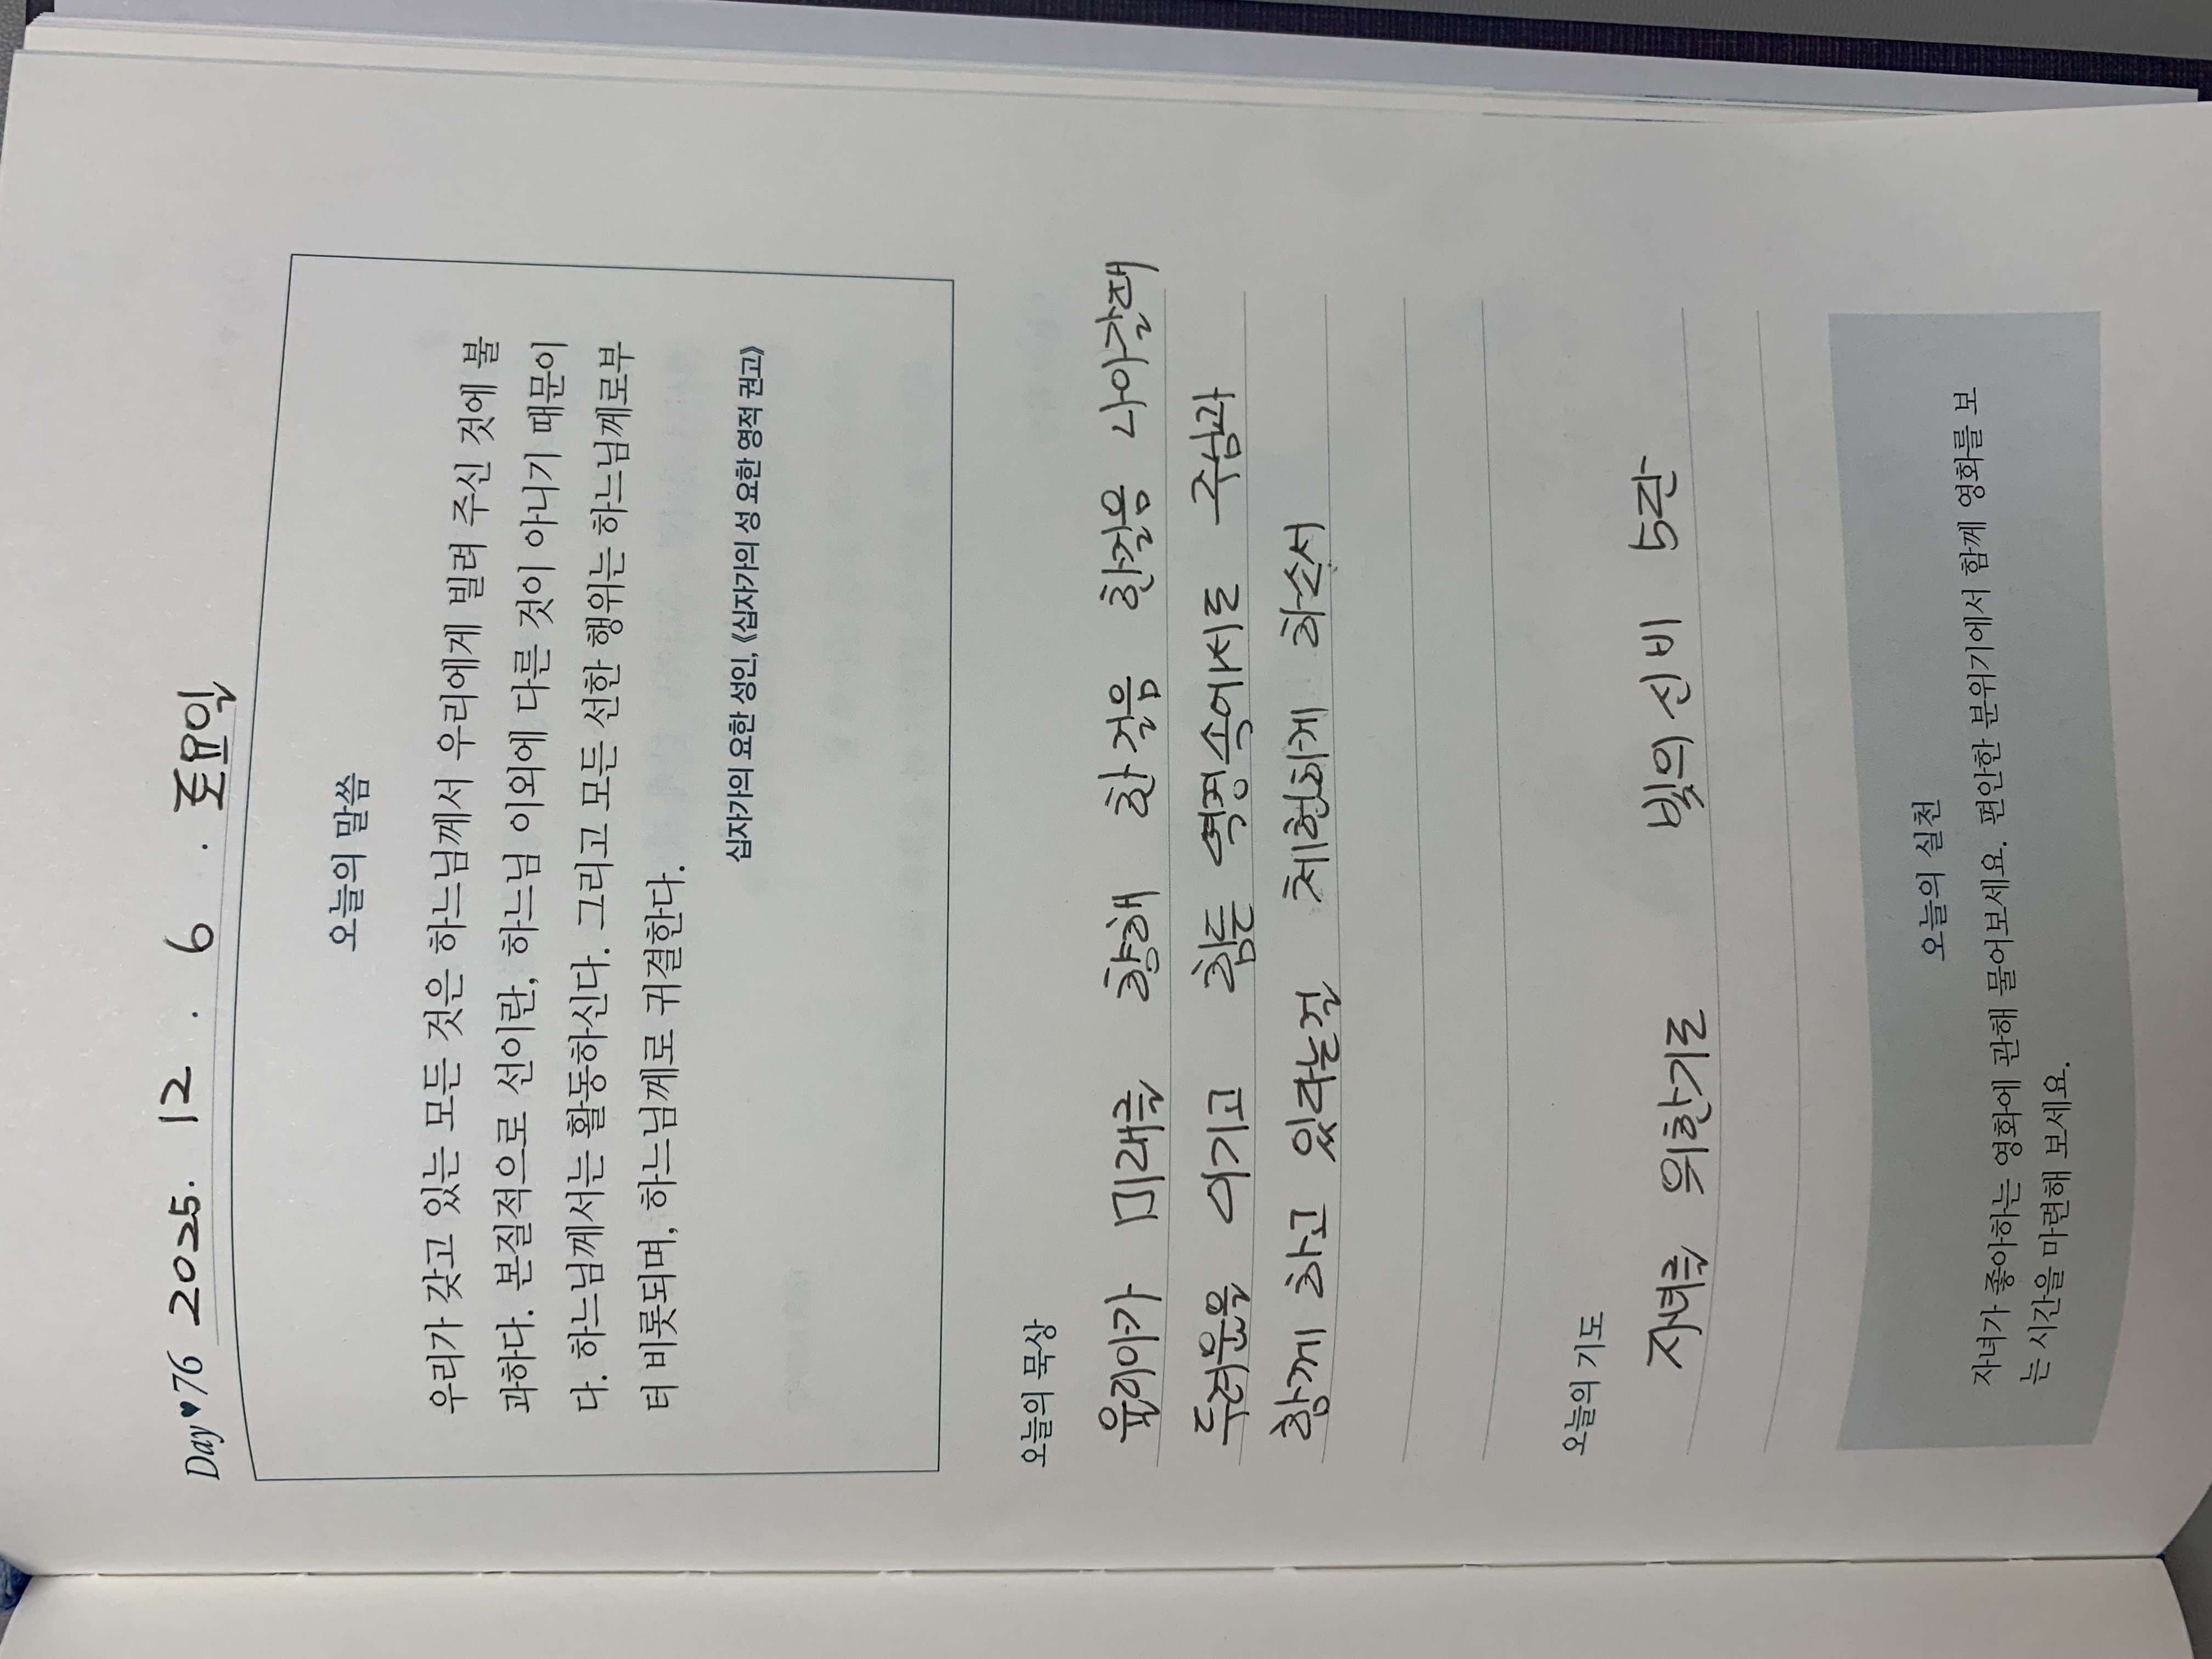 Day♥76 2025. 12. 6. 토요일
오늘의 말씀
우리가 갖고 있는 모든 것은 하느님께서 우리에게 빌려 주신 것에 불
과하다. 본질적으로 선이란, 하느님 이외에 다른 것이 아니기 때문이
다. 하느님께서는 활동하신다. 그리고 모든 선한 행위는 하느님께로부
터 비롯되며, 하느님께로 귀결한다.
십자가의 요한 성인, 《십자가의 성 요한 영적 권고》
오늘의 묵상
율리아가 미래를 향해 한걸음 한걸음 나아갈때
두려움을 이기고 힘든 역경속에서도 주님과
함께 하고 있다는걸 체험하게 하소서
오늘의 기도
자녀를 위한기도 빛의 신비 5단
오늘의 실천
자녀가 좋아하는 영화에 관해 물어보세요. 편안한 분위기에서 함께 영화를 보
는 시간을 마련해 보세요.